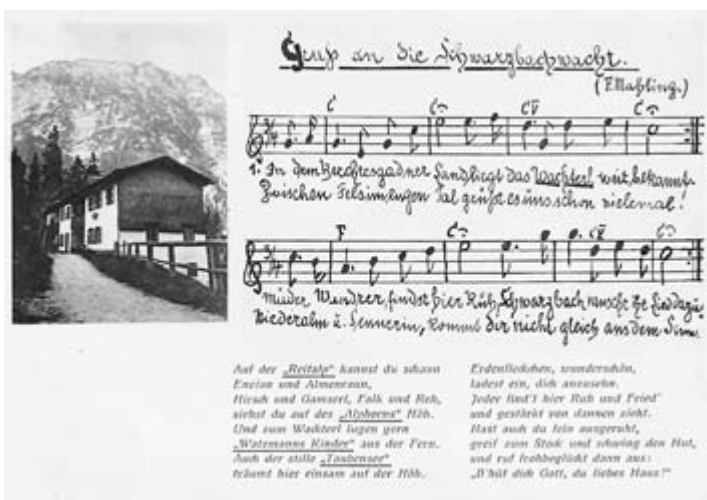 Gruß an die Schwarzbachwacht.
(F. Maßling.)
C C D V C
1. In dem Berchtesgadner Land, liegt das Wachterl weit bekannt.
Zwischen Felsim engen Tal grüßt es uns schon vielemal!
F C C V C
Müder Wandrer, findst hier Ruh, Schwarzbach rauscht ihr Lied dazu
Niederalm u. Sennerin, kommt dir nicht gleich aus dem Sinn.
Auf der „Reitalp" kannst du schaun
Enzian und Almenraun,
Hirsch und Gamserl, Falk und Reh,
siehst du auf des „Alphorns" Höh.
Und zum Wachterl lugen gern
„Watzmanns Kinder" aus der Fern.
Auch der stille „Taubensee"
träumt hier einsam auf der Höh.
Erdenfleckchen, wunderschön,
ladest ein, dich anzusehn.
Jeder find't hier Ruh und Fried'
und gestärkt von dannen zieht.
Hast auch du fein ausgeruht,
greif zum Stock und schwing den Hut,
und ruf frohbeglückt dann aus:
„B'hüt dich Gott, du liebes Haus!"